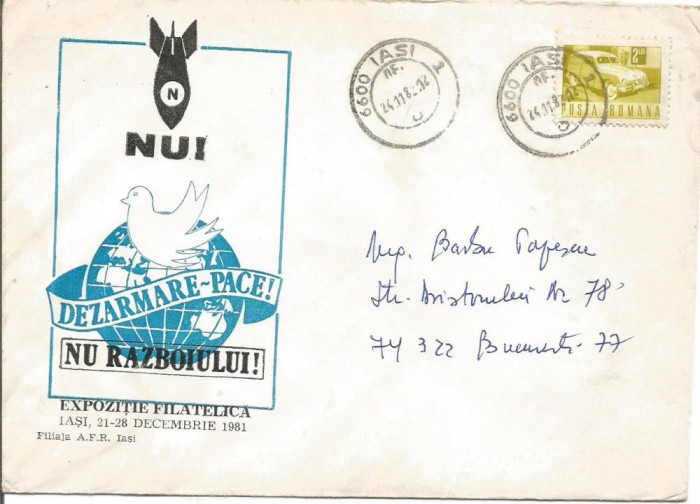 N
NU!
DEZARMARE~PACE!
NU RAZBOIULUI!
EXPOZIȚIE FILATELICĂ
IAȘI, 21-28 DECEMBRIE 1981
Filiala A.F.R. Iași
6600 IAȘI 1
24.11.82.12
6600 IAȘI 1
24.11.82.12
2 LEI
POSTA ROMANA
Ing. Barbu Popescu
Str. Nr 78
74322 București 77